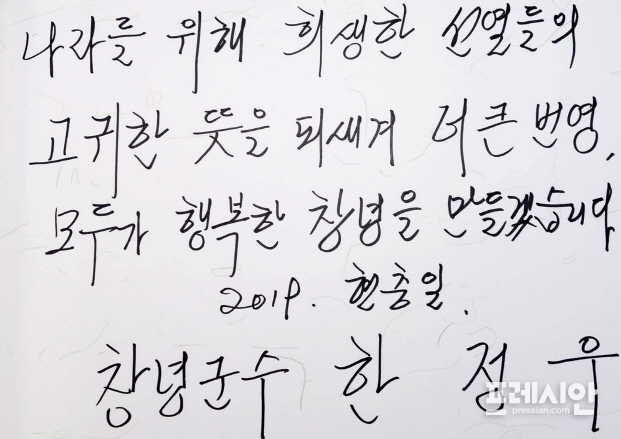 나라를 위해 희생한 선열들의
고귀한 뜻을 되새겨 더 큰 번영,
모두가 행복한 창녕을 만들겠습니다
2019. 현충일.
창녕군수 한 정 우
프레시안
pressian.com